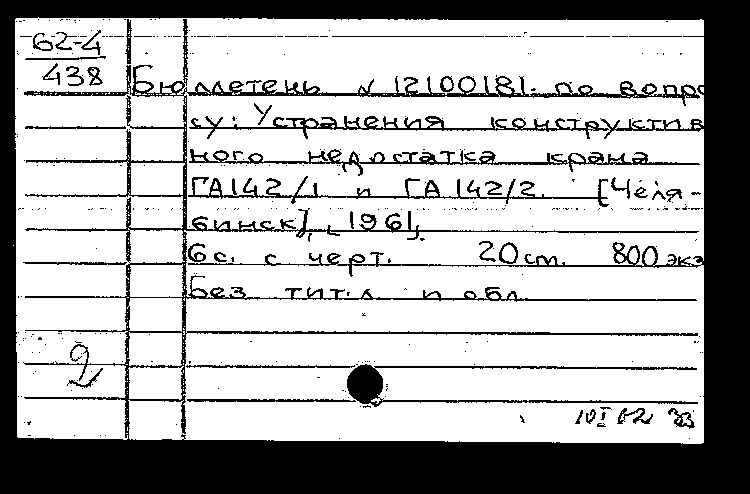 62-4
438
Бюллетень N 12100181. по вопро
су: Устранения конструктив
ного недостатка крана
ГА142/1 и ГА142/2. [Челя-
бинск], 1961.
6с. с черт. 20 см. 800 экз
Без тит. л. и обл.
2
10 I 62